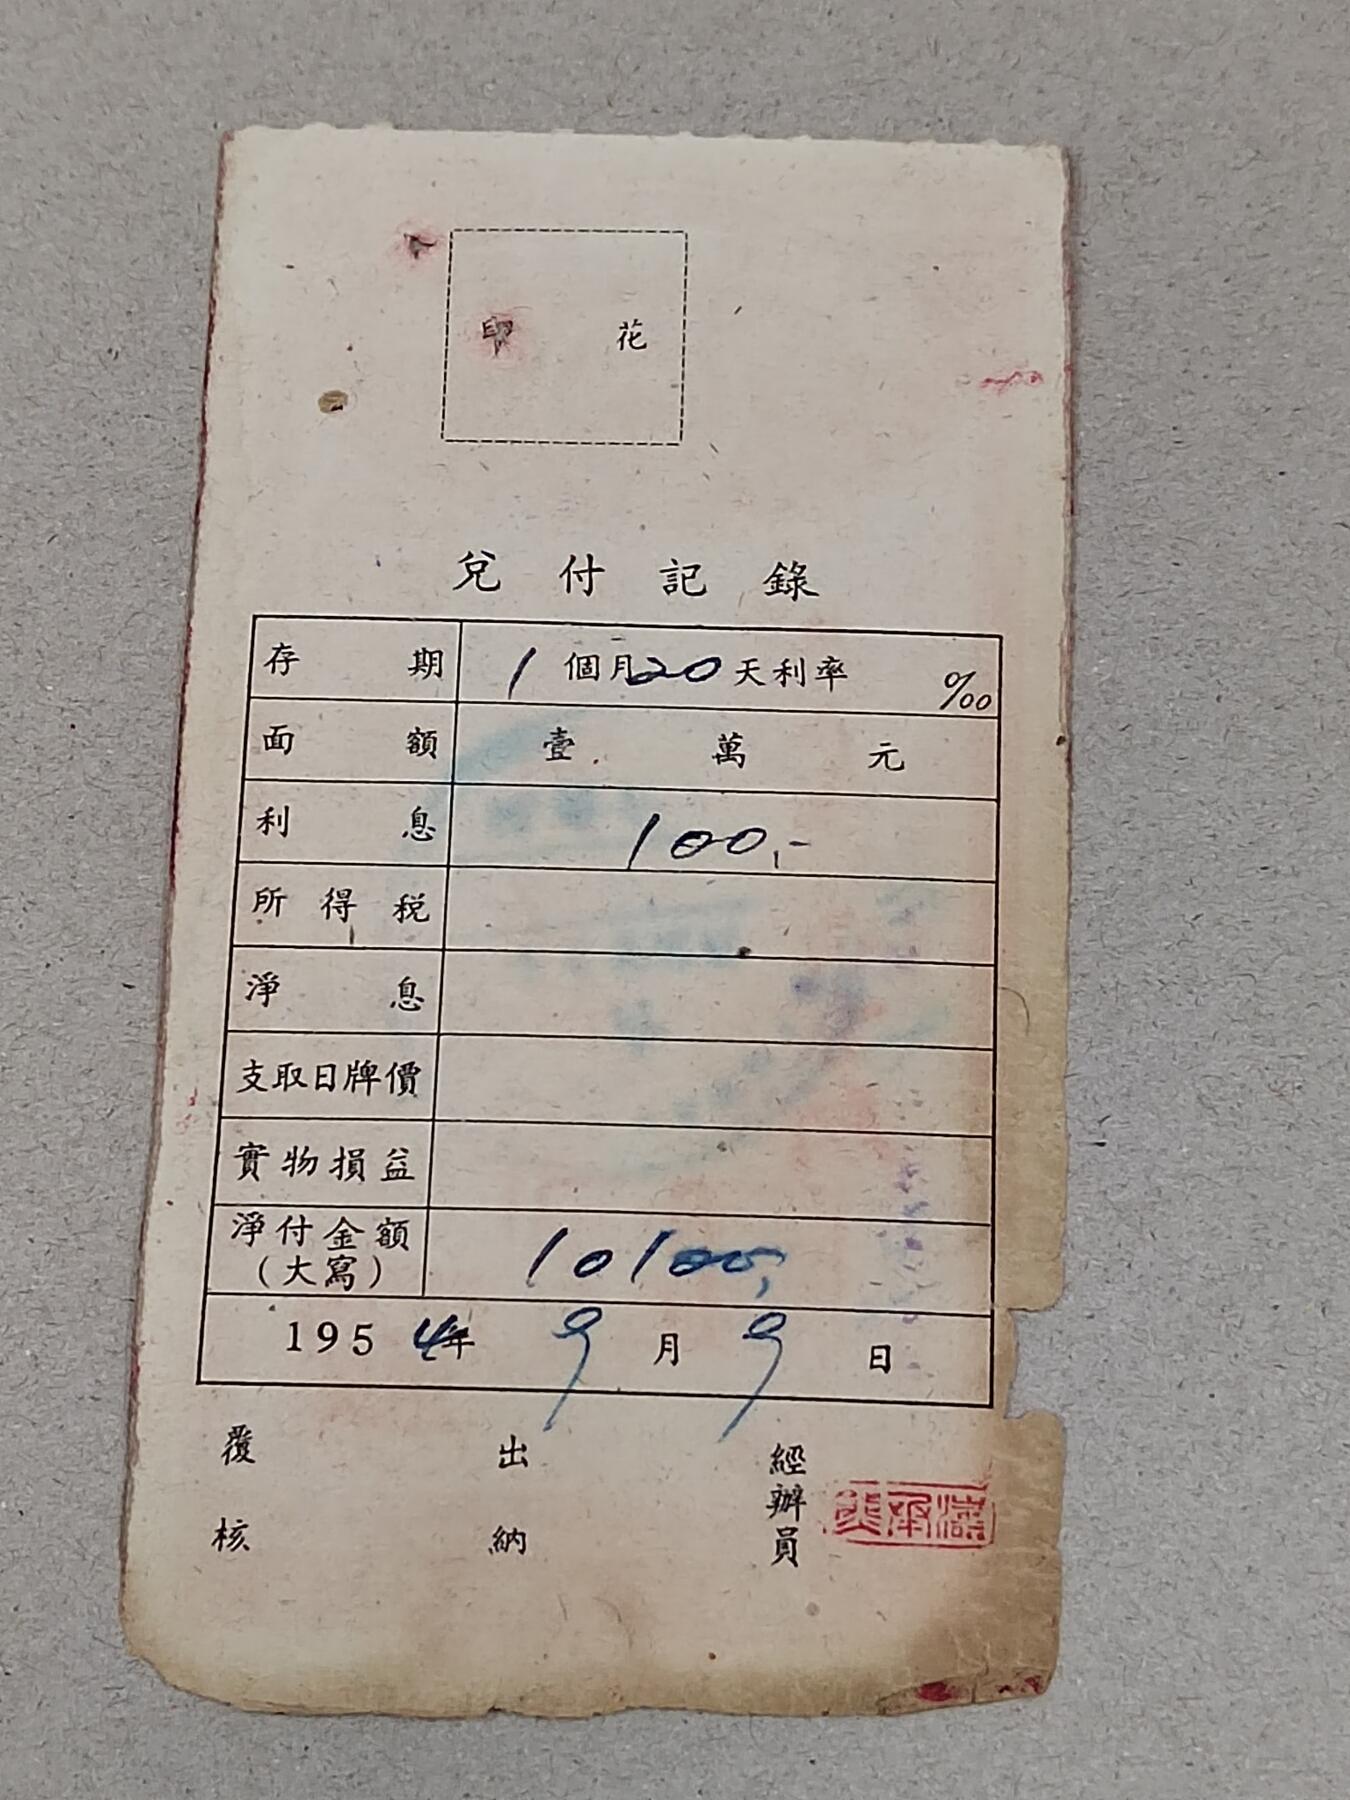 印花
兌付記錄
存期 1個月20天利率 ‰
面額 壹萬元
利息 100,-
所得稅
淨息
支取日牌價
實物損益
淨付金額 10100,
(大寫)
1954年9月9日
覆核 出納 經辦員